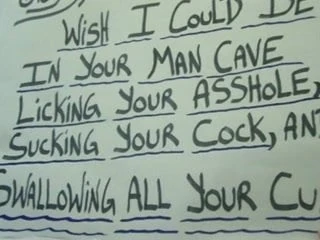 WISH I COULD BE
IN YOUR MAN CAVE
LICKING YOUR ASSHOLE,
SUCKING YOUR COCK,
SWALLOWING ALL YOUR